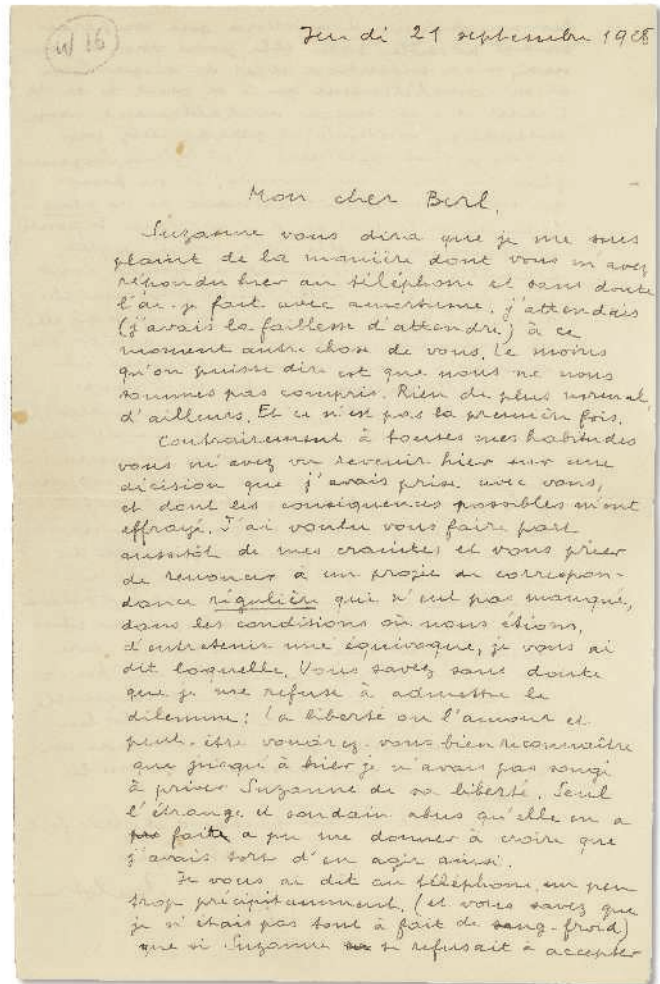 W 16
Jeudi 21 septembre 1928
Mon cher Berl,
Suzanne vous dira que je me suis
plaint de la manière dont vous m'avez
répondu hier au téléphone et sans doute
l'ai-je fait avec amertume. j'attendais
(j'avais la faiblesse d'attendre) à ce
moment autre chose de vous. Le moins
qu'on puisse dire est que nous ne nous
sommes pas compris. Rien de plus normal,
d'ailleurs. Et ce n'est pas la première fois.
Contrairement à toutes mes habitudes
vous m'avez vu revenir hier sur une
décision que j'avais prise avec vous,
et dont les conséquences possibles m'ont
effrayé. J'ai voulu vous faire part
aussitôt de mes craintes et vous prier
de renoncer à un projet de correspon-
dance régulière qui n'eut pas manqué,
dans les conditions où nous étions,
d'entretenir une équivoque, je vous ai
dit laquelle. Vous savez sans doute
que je me refuse à admettre le
dilemme : la liberté ou l'amour et
peut-être voudrez-vous bien reconnaître
que jusqu'à hier je n'avais pas songé
à priver Suzanne de sa liberté. Seul
l'étrange et soudain abus qu'elle en a
fait a pu me donner à croire que
j'avais tort d'en agir ainsi.
Je vous ai dit au téléphone, un peu
trop précipitamment, (et vous savez que
je n'étais pas tout à fait de sang-froid)
que si Suzanne se refusait à accepter